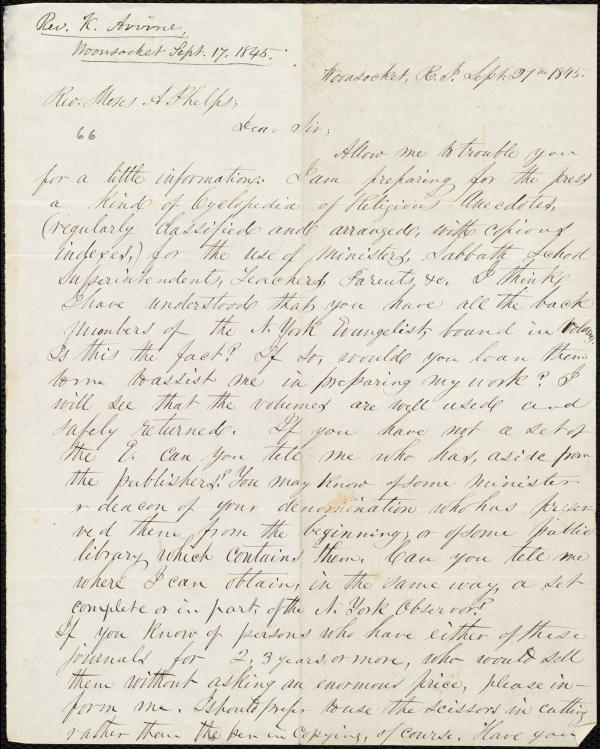 Rev. K. Arvine,
Woonsocket Sept. 17. 1845.
Woonsocket, R. I. Sept. 27th 1845.
Rev. Moses A Phelps,
66
Dear Sir,
Allow me to trouble you
for a little information. I am preparing for the press
a kind of Cyclopedia of Religious Anecdotes,
(regularly classified and arranged, with copious
indexes,) for the use of ministers, Sabbath School
Superintendents, Teachers, Parents, &c. I think
I have understood that you have all the back
numbers of the N. York Evangelist, bound in volumes.
Is this the fact? If so, would you loan them
to me to assist me in preparing my work? I
will see that the volumes are well used and
safely returned. If you have not a set of
the E. can you tell me who has, aside from
the publishers? You may know of some minister
or deacon of your denomination who has preser
ved them from the beginning, or of some public
library which contains them. Can you tell me
where I can obtain, in the same way, a set
complete or in part, of the N. York Observer?
If you know of persons who have either of these
journals for 2, 3 years, or more, who would sell
them without asking an enormous price, please in-
form me. I should prefer to use the scissors in cutting
rather than the pen in copying, of course. Have you